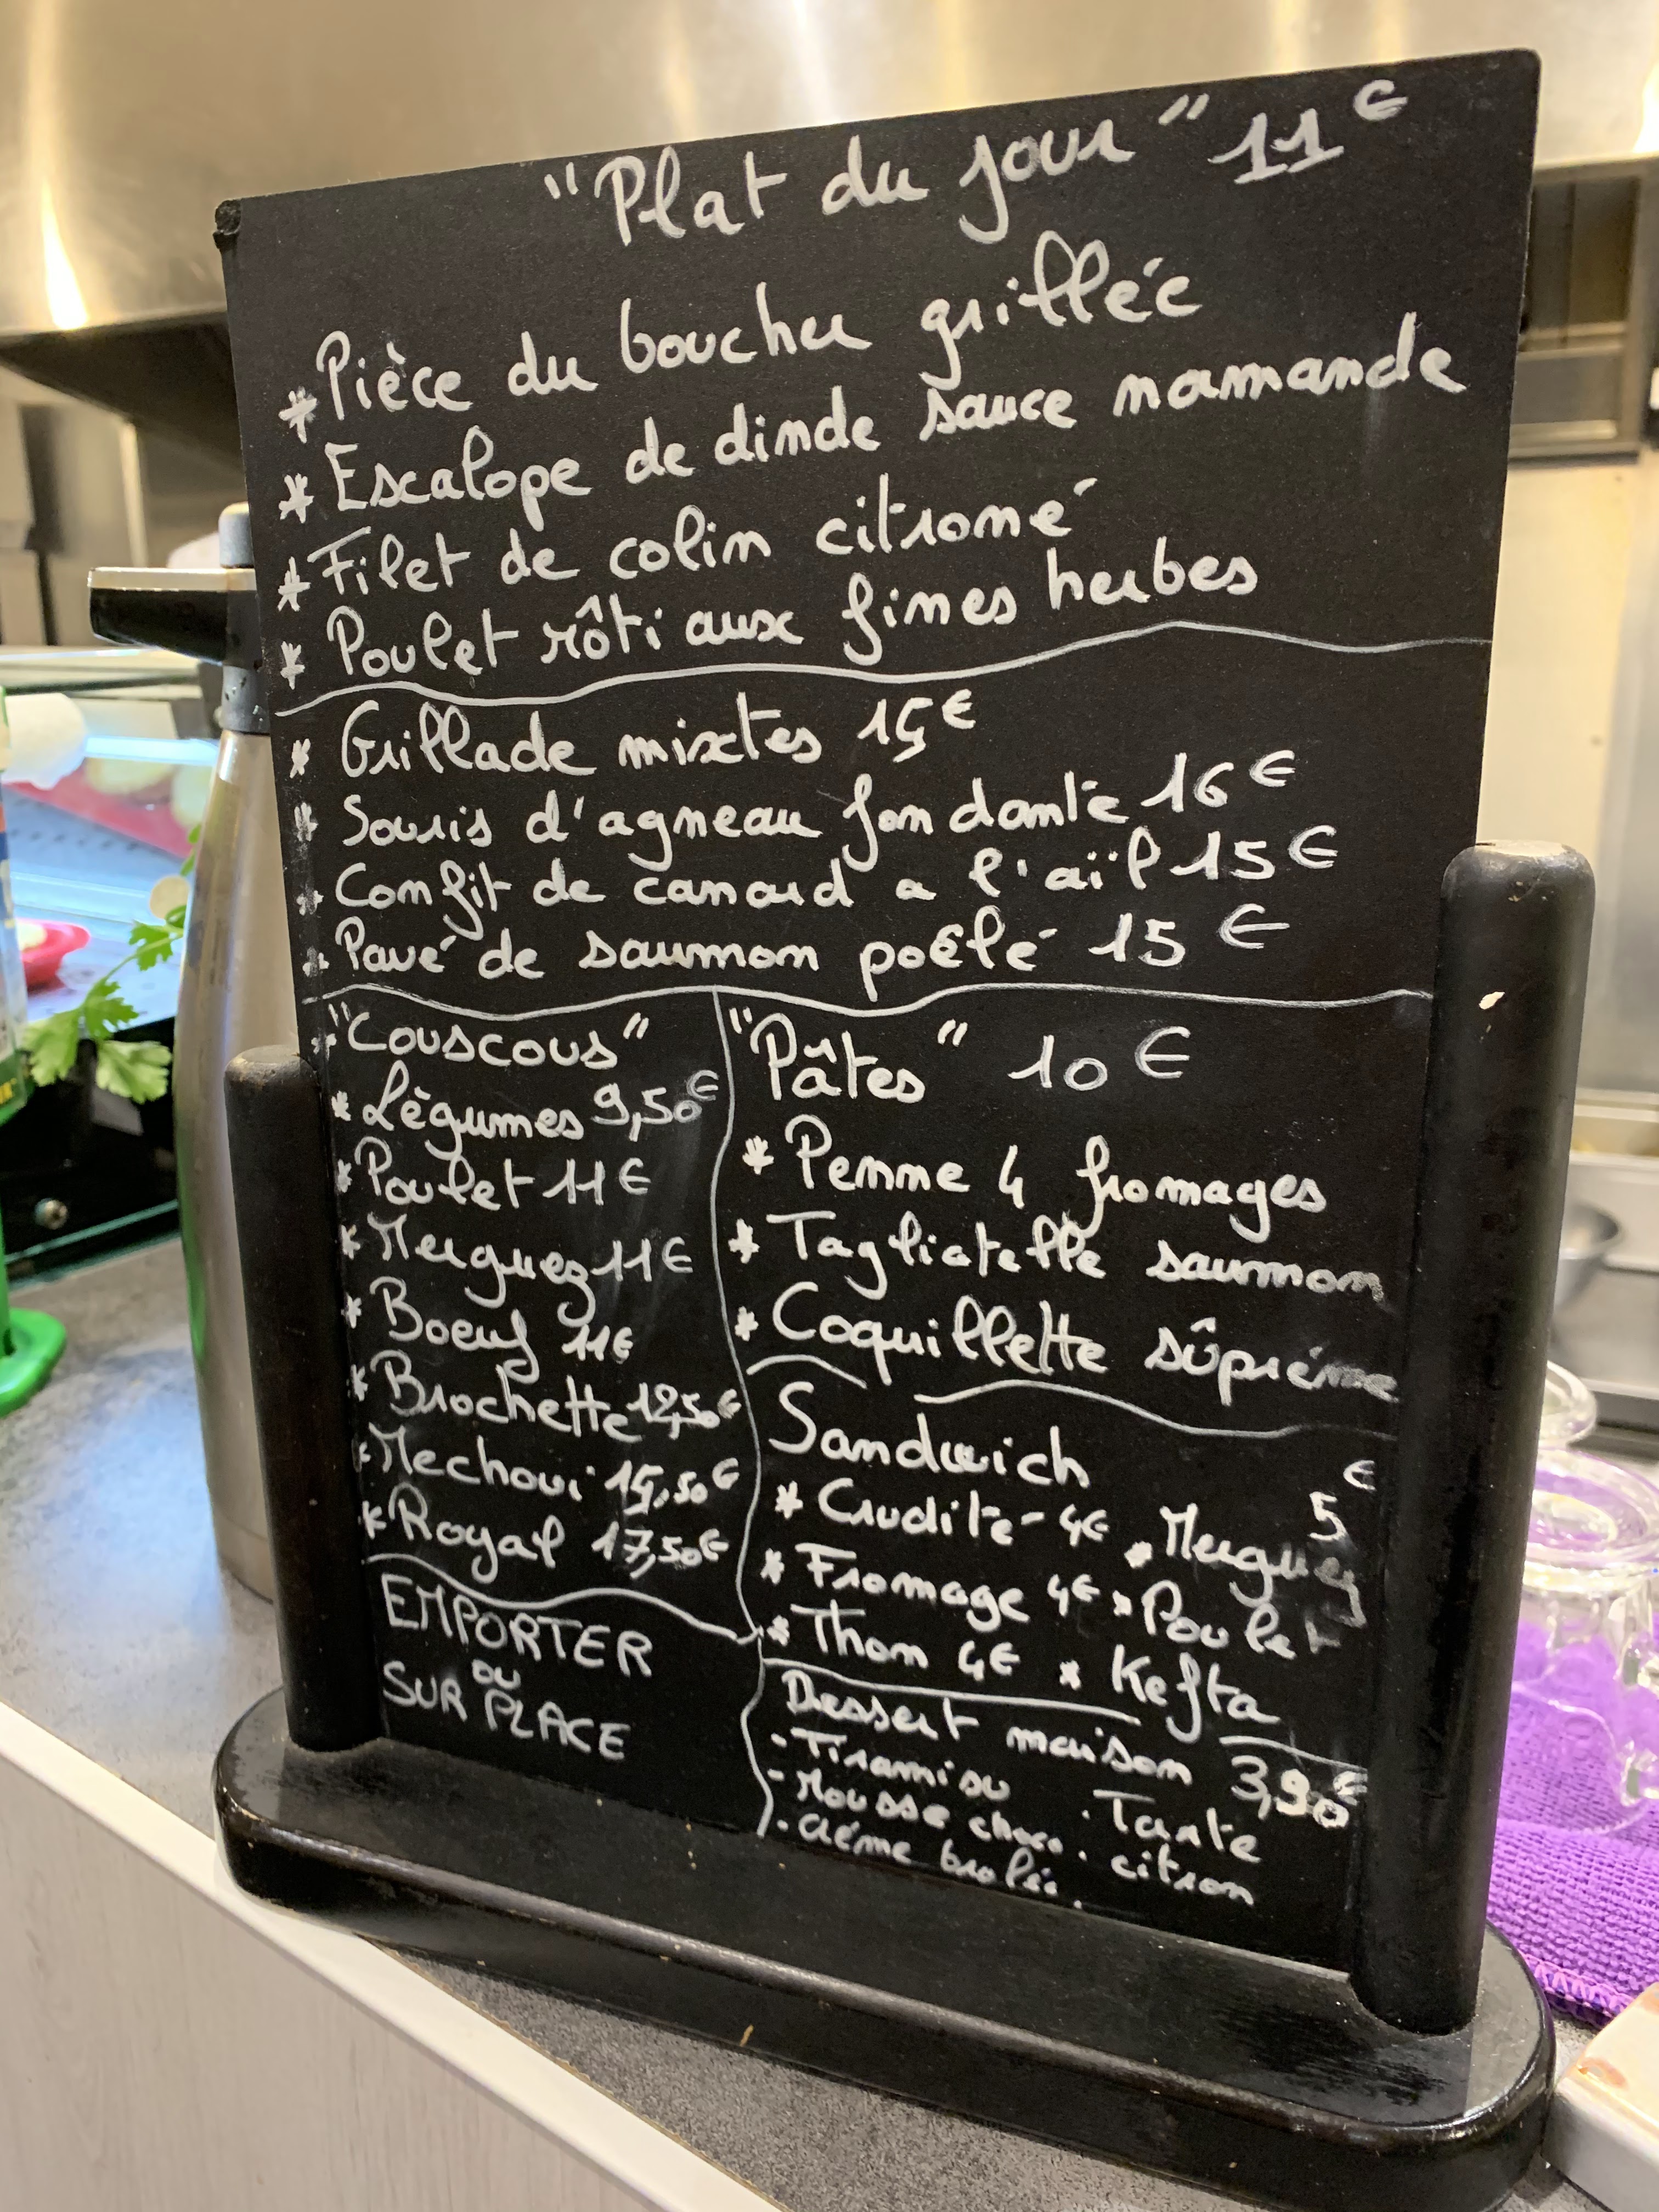 "Plat du jour" 11€
* Pièce du boucher grillée
* Escalope de dinde sauce normande
* Filet de colin citronné
* Poulet rôti aux fines herbes
* Grillade mixtes 15€
* Souris d'agneau fondante 16€
* Confit de canard a l'aïl 15€
* Pavé de saumon poêlé 15€
"Couscous"
* Lègumes 9,50€
* Poulet 11€
* Merguez 11€
* Boeuf 11€
* Brochette 12,50€
* Mechoui 15,50€
* Royal 17,50€
EMPORTER
OU
SUR PLACE
"Pâtes" 10€
* Penne 4 fromages
* Tagliatelle saumon
* Coquillette sûprème
Sandwich 5€
* Crudité 4€ * Merguez
* Fromage 4€ * Poulet
* Thon 4€ * Kefta
Dessert maison 3,90€
- Tiramisu
- Mousse choco
- crème brolée
. Tarte
citron